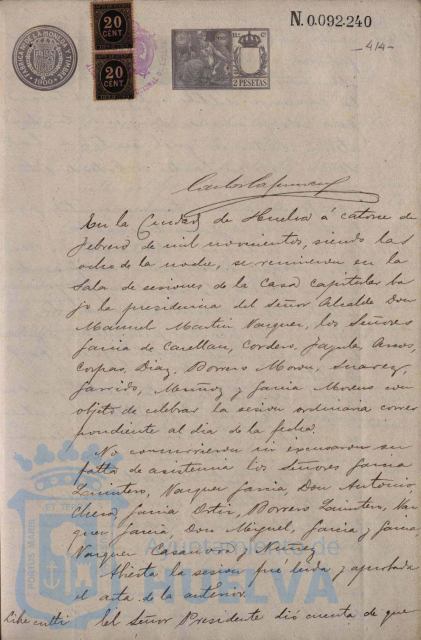 N. 0.092.240
-414-
FÁBRICA NACIONAL DE LA MONEDA Y TIMBRE
1900
20
CENT
20
CENT
11ª Cª
2 PESETAS
En la Ciudad de Huelva á catorce de
Febrero de mil novecientos, siendo las
ocho de la noche, se reunieron en la
Sala de sesiones de la Casa capitular ba
jo la presidencia del Señor Alcalde Don
Manuel Martin Vazquez, los Señores
Garcia de Castellan, Cordero, Jaqula, Arcos,
Corpas, Diaz, Borrero Mora, Suarez,
Garrido, Muñoz y Garcia Moreno con
objeto de celebrar la sesion ordinaria corres
pondiente al dia de la fecha.
No concurrieron ni excusaron su
falta de asistencia los Señores Garcia
Quintero, Vazquez Garcia, Don Antonio,
Garcia Ortiz, Borrero Quintero, Vaz
quez Garcia, Don Miguel, Garcia y Garcia,
Vazquez Casanova y Nuñez
Abierta la sesion fué leida y aprobada
el acta de la anterior.
el Señor Presidente dió cuenta de que
PORTUS MARIS ET TERRAE
Ayuntamiento de
HUELVA